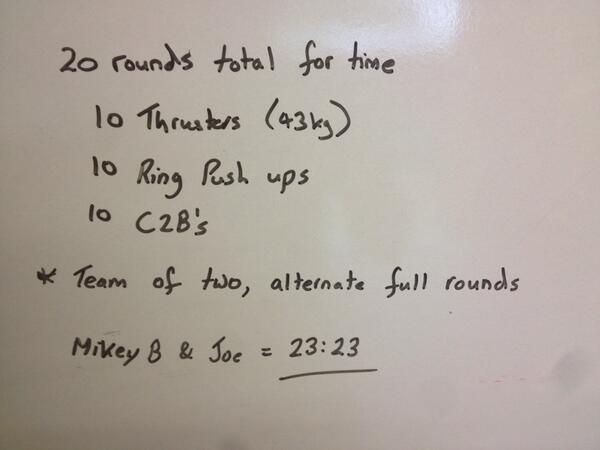 20 rounds total for time
10 Thrusters (43kg)
10 Ring Push ups
10 C2B's
* Team of two, alternate full rounds
Mikey B & Joe = 23:23